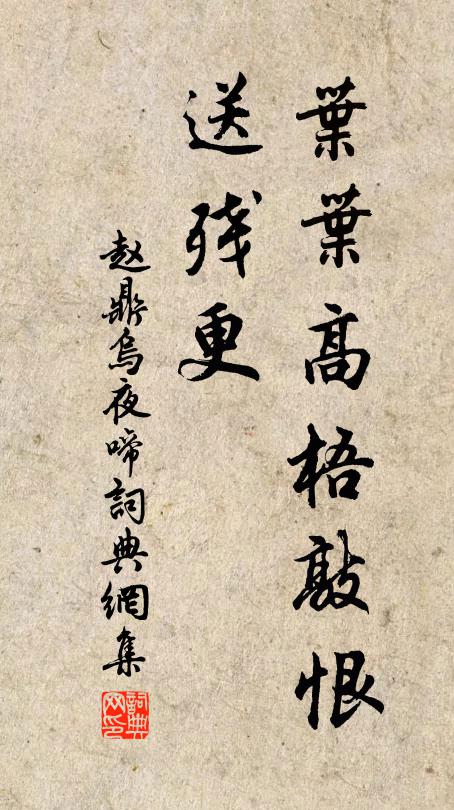 葉葉高梧敲恨
送残更
赵鼎烏夜啼詞典網集
詞典网印